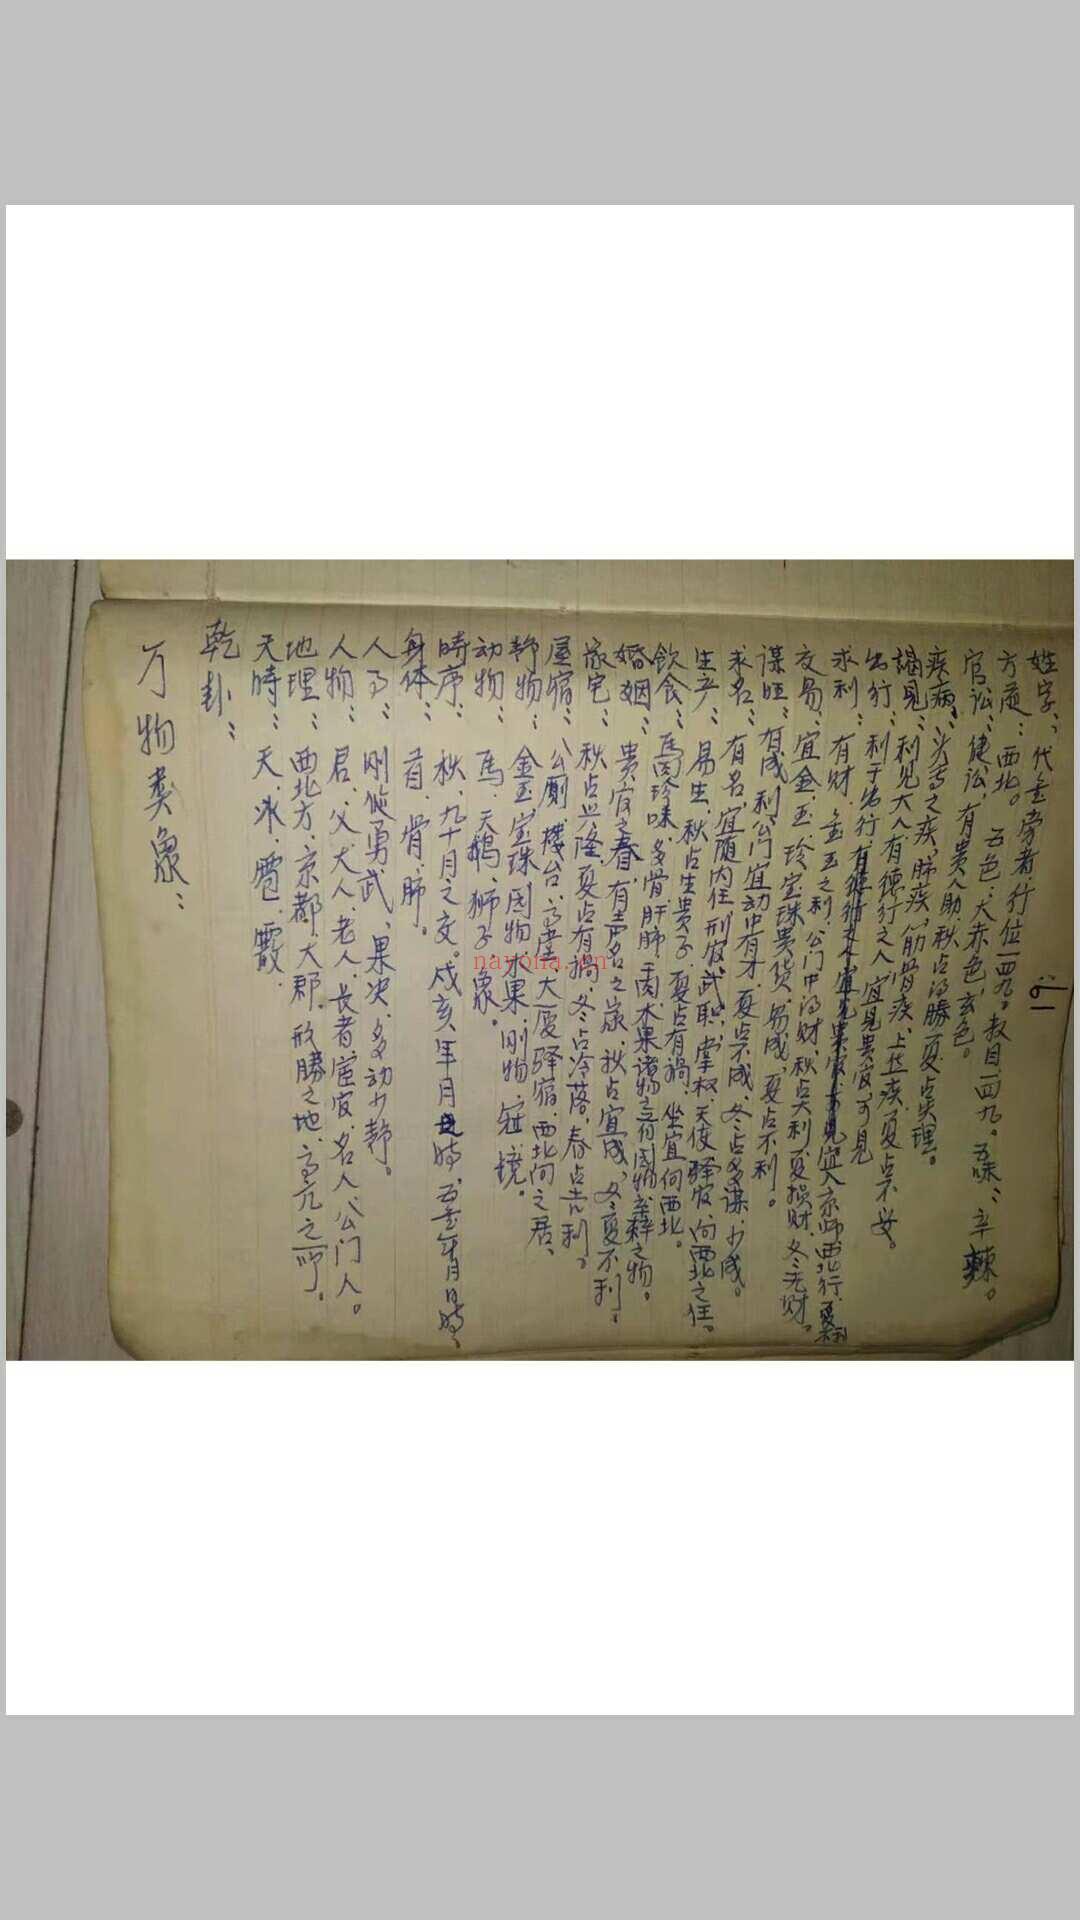 万物类象：
乾卦：
天時：天.冰.雹.霰.
地理：西北方.京都.大郡.形勝之地.高亢之所。
人物：君.父.大人.老人.长者.宦官.名人.公门人。
人事：刚健勇武.果决.多动少静。
身体：首.骨.肺。
時序：秋.九十月之交。戌亥年月時.五金年月日時、
动物：馬.天鹅.狮子.象。
静物：金玉.宝珠.圆物.水果.刚物.冠.镜。
屋宿：公厠.楼台.高堂.大厦.驿宿.西北向之居、
家宅：秋占兴隆.夏占有禍.冬占冷落.春占吉利、
婚姻：贵官之眷.有声名之家.秋占宜成、冬夏不利.
飲食：馬肉珍味.多骨.肝肺.干肉.木果.诸物之首.圆物.辛辣之物。
生产：易生.秋占生贵子.夏占有禍.坐宜向西北。
求名：有名.宜随内任.刑官.武职.掌权.天使.驿官.向西北之任。
谋旺：有成.利公门.宜动中有才.夏占不成、冬占多谋少成。
交易：宜金.玉.珍.宝珠贵货.易成、夏占不利。
求利：有财.金玉之利.公门中得财.秋占大利.夏损财.冬无财.
出行：利于出行.宜入京师.西北行.夏不利
謁見：利见大人.有德行之人.宜见贵官.可见
疾病：头面之疾.肺疾.筋骨疾.上焦疾.夏占不安。
官讼：健讼.有贵人助.秋占得勝.夏占失理。
方道：西北。五色：大赤色.玄色。
姓字：代金旁者.行位一四九。数目一四九。五味：辛辣。
19
nayona.cn